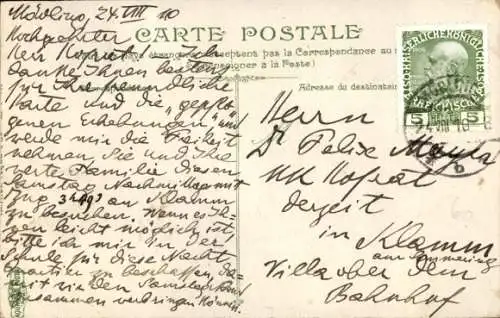 Mödling, 24. VIII 10
Hochgeehrter
Herr Hofrat! Ich
danke Ihnen bestens
für Ihre freundliche
Karte und die „gepfl
genen Erhebungen" und
werde mir die Freiheit
nehmen, Sie und Ihre
werte Familie diesen
Samstag Nachmittag mit
Zug an Klamm
zu besuchen. Wenn es Ih-
nen leicht möglich ist,
bitte ich mir in der
Schule für diese Nacht
Quartier zu beschaffen, da-
mit wir den Samstag Abend
zusammen verbringen können.
CARTE POSTALE
pays étrangers acceptent pas la Correspondance au
(se renseigner à la Poste)
Adresse du destinataire
KAISERLICHE KÖNIGLICHE
ÖSTERREICHISCHE
5 5
Herrn
Dr Felix Mayr
KK Hofrat
derzeit
in Klamm
am Semmering
Villa ober dem
Bahnhof